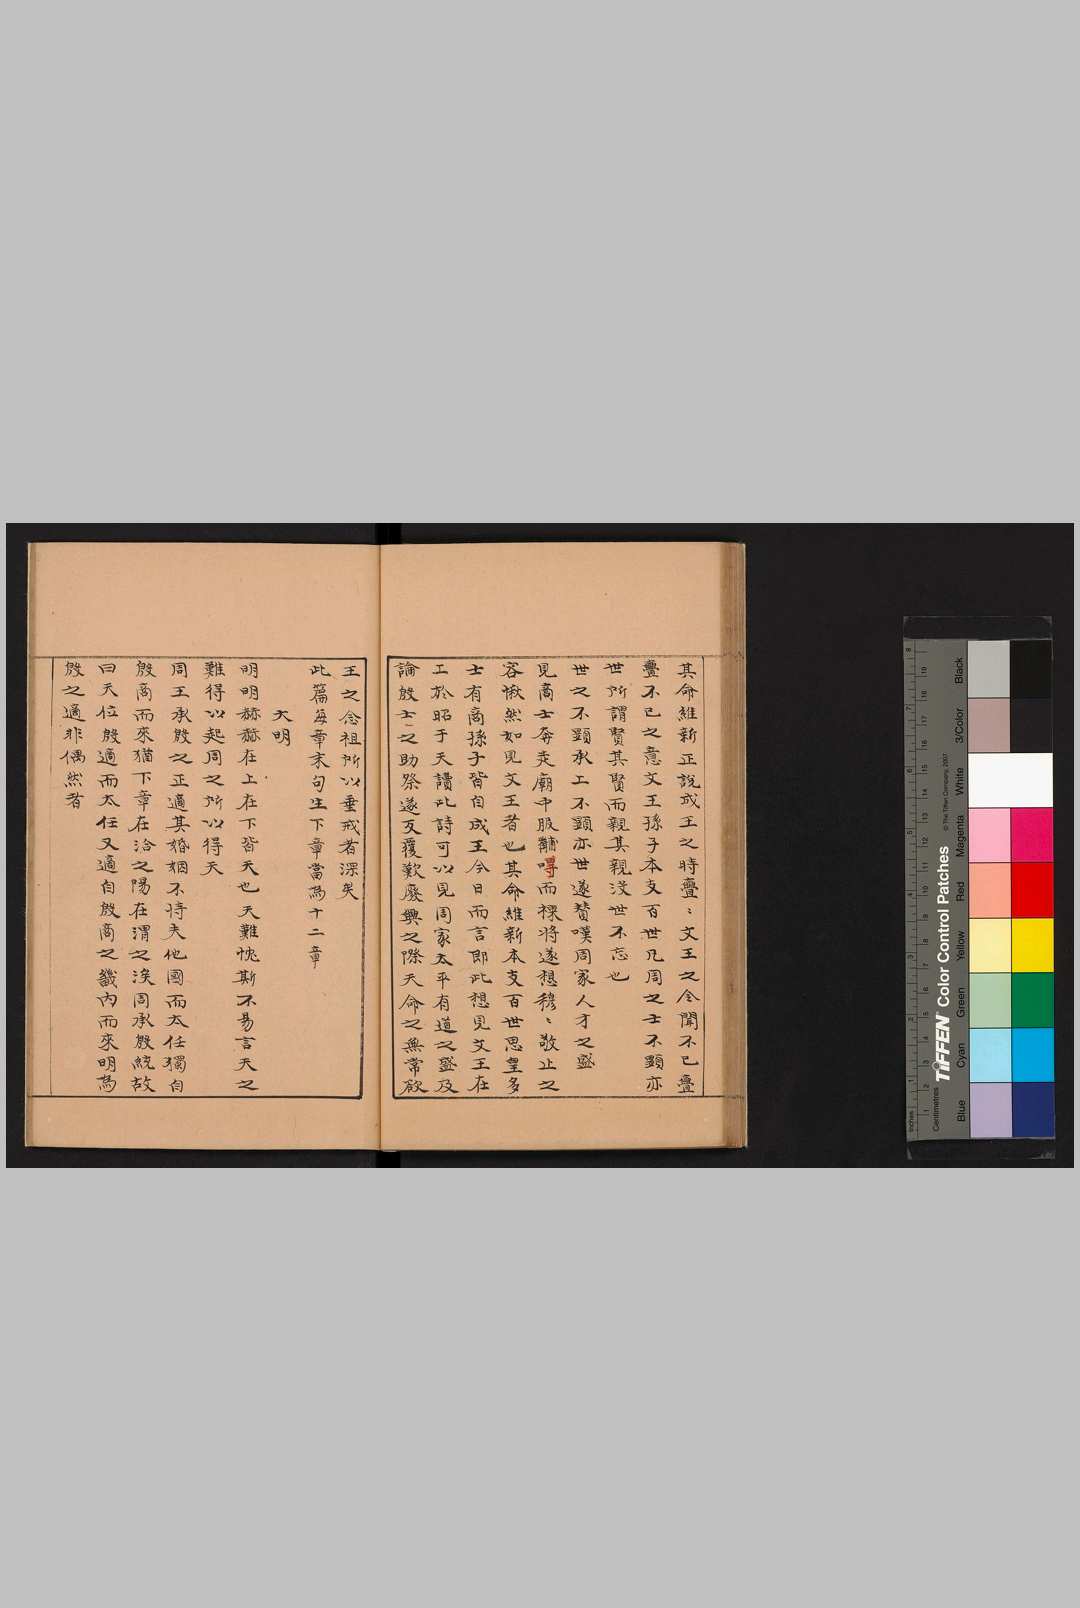 其命維新正說成王之時亹〻文王之令聞不已亹
亹不已之意文王孫子本支百世凡周之士不顯亦
世所謂賢其賢而親其親沒世不忘也
世之不顯承上不顯亦世遂贊嘆周家人才之盛
見商士奔走廟中服黼冔而祼將遂想穆〻敬止之
容愀然如見文王者也其命維新本支百世思皇多
士有商孫子皆自成王今日而言即此想見文王在
上於昭于天讀此詩可以見周家太平有道之盛及
論殷士之助祭遂反覆歎廢興之際天命之無常欲
王之念祖所以垂戒者深矣
此篇每章末句生下章當為十二章
大明
明明赫赫在上在下皆天也天難忱斯不易言天之
難得以起周之所以得天
周王承殷之正適其婚姻不特夫他國而太任獨自
殷商而來猶下章在洽之陽在渭之涘周承殷統故
曰天位殷適而太任又適自殷商之畿內而來明為
殷之適非偶然者
TIFFEN Color Control Patches
© The Tiffen Company, 2007
Inches
Centimetres
Blue
Cyan
Green
Yellow
Red
Magenta
White
3/Color
Black